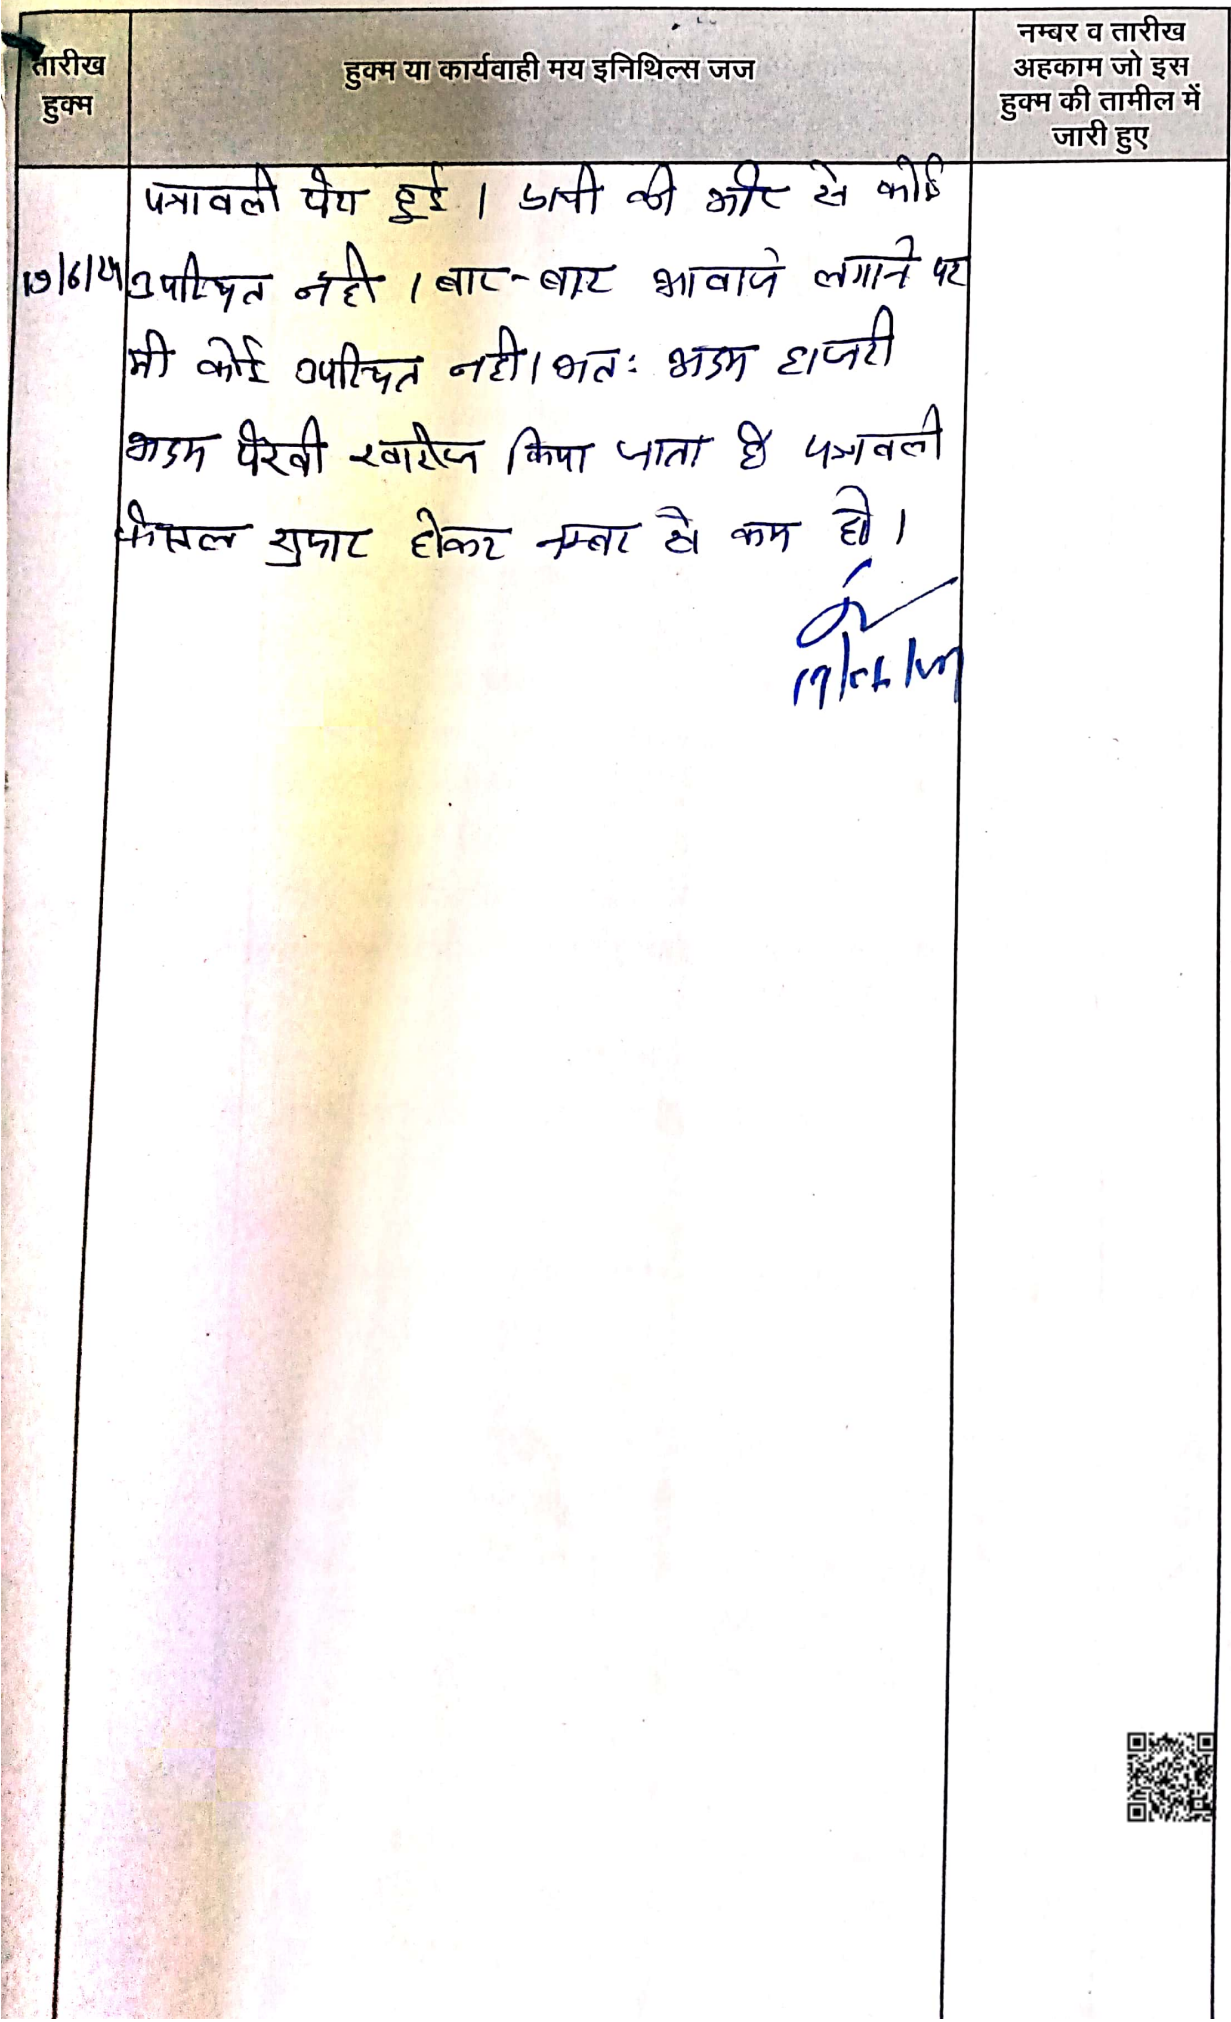 तारीख
हुक्म
हुक्म या कार्यवाही मय इनिथिल्स जज
नम्बर व तारीख
अहकाम जो इस
हुक्म की तामील में
जारी हुए
पत्रावली पेश हुई । प्रार्थी की ओर से कोई
उपस्थित नहीं । बार-बार आवाजे लगाने पर
भी कोई उपस्थित नही। अतः अदम हाजरी
अदम पैरवी खारीज किया जाता है पत्रावली
फैसल शुमार होकर नम्बर से कम हो ।